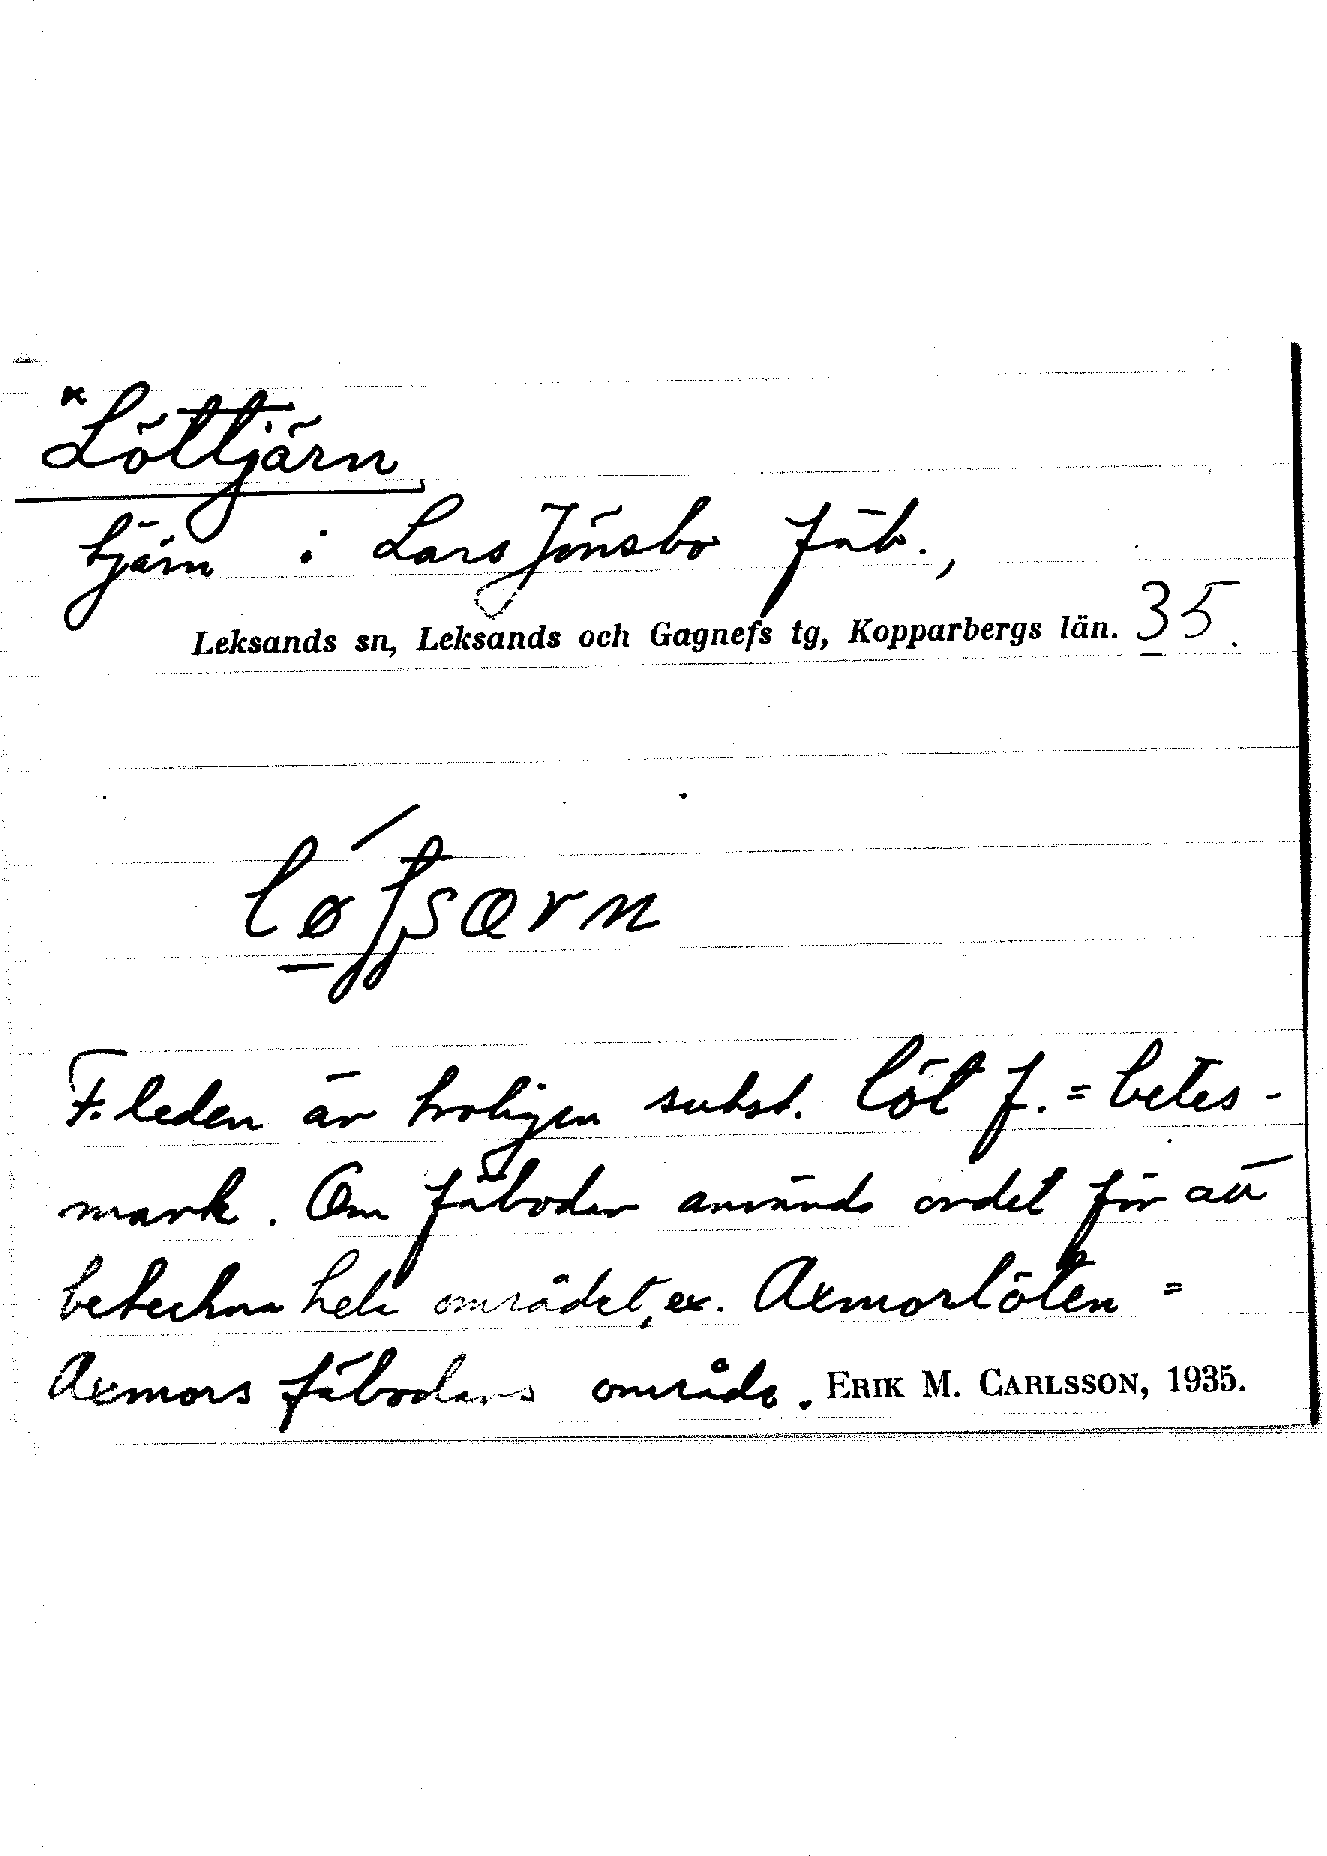 *Löttjärn
tjärn i Lars Jönsbo fäb.,
Leksands sn, Leksands och Gagnefs tg, Kopparbergs län. 35.
F. leden är troligen subst. löt f. = betes-
mark. Om fäbodar används ordet för att
beteckna hela området, ex. Axmorlöten =
Axmors fäbodars område. ERIK M. CARLSSON, 1935.